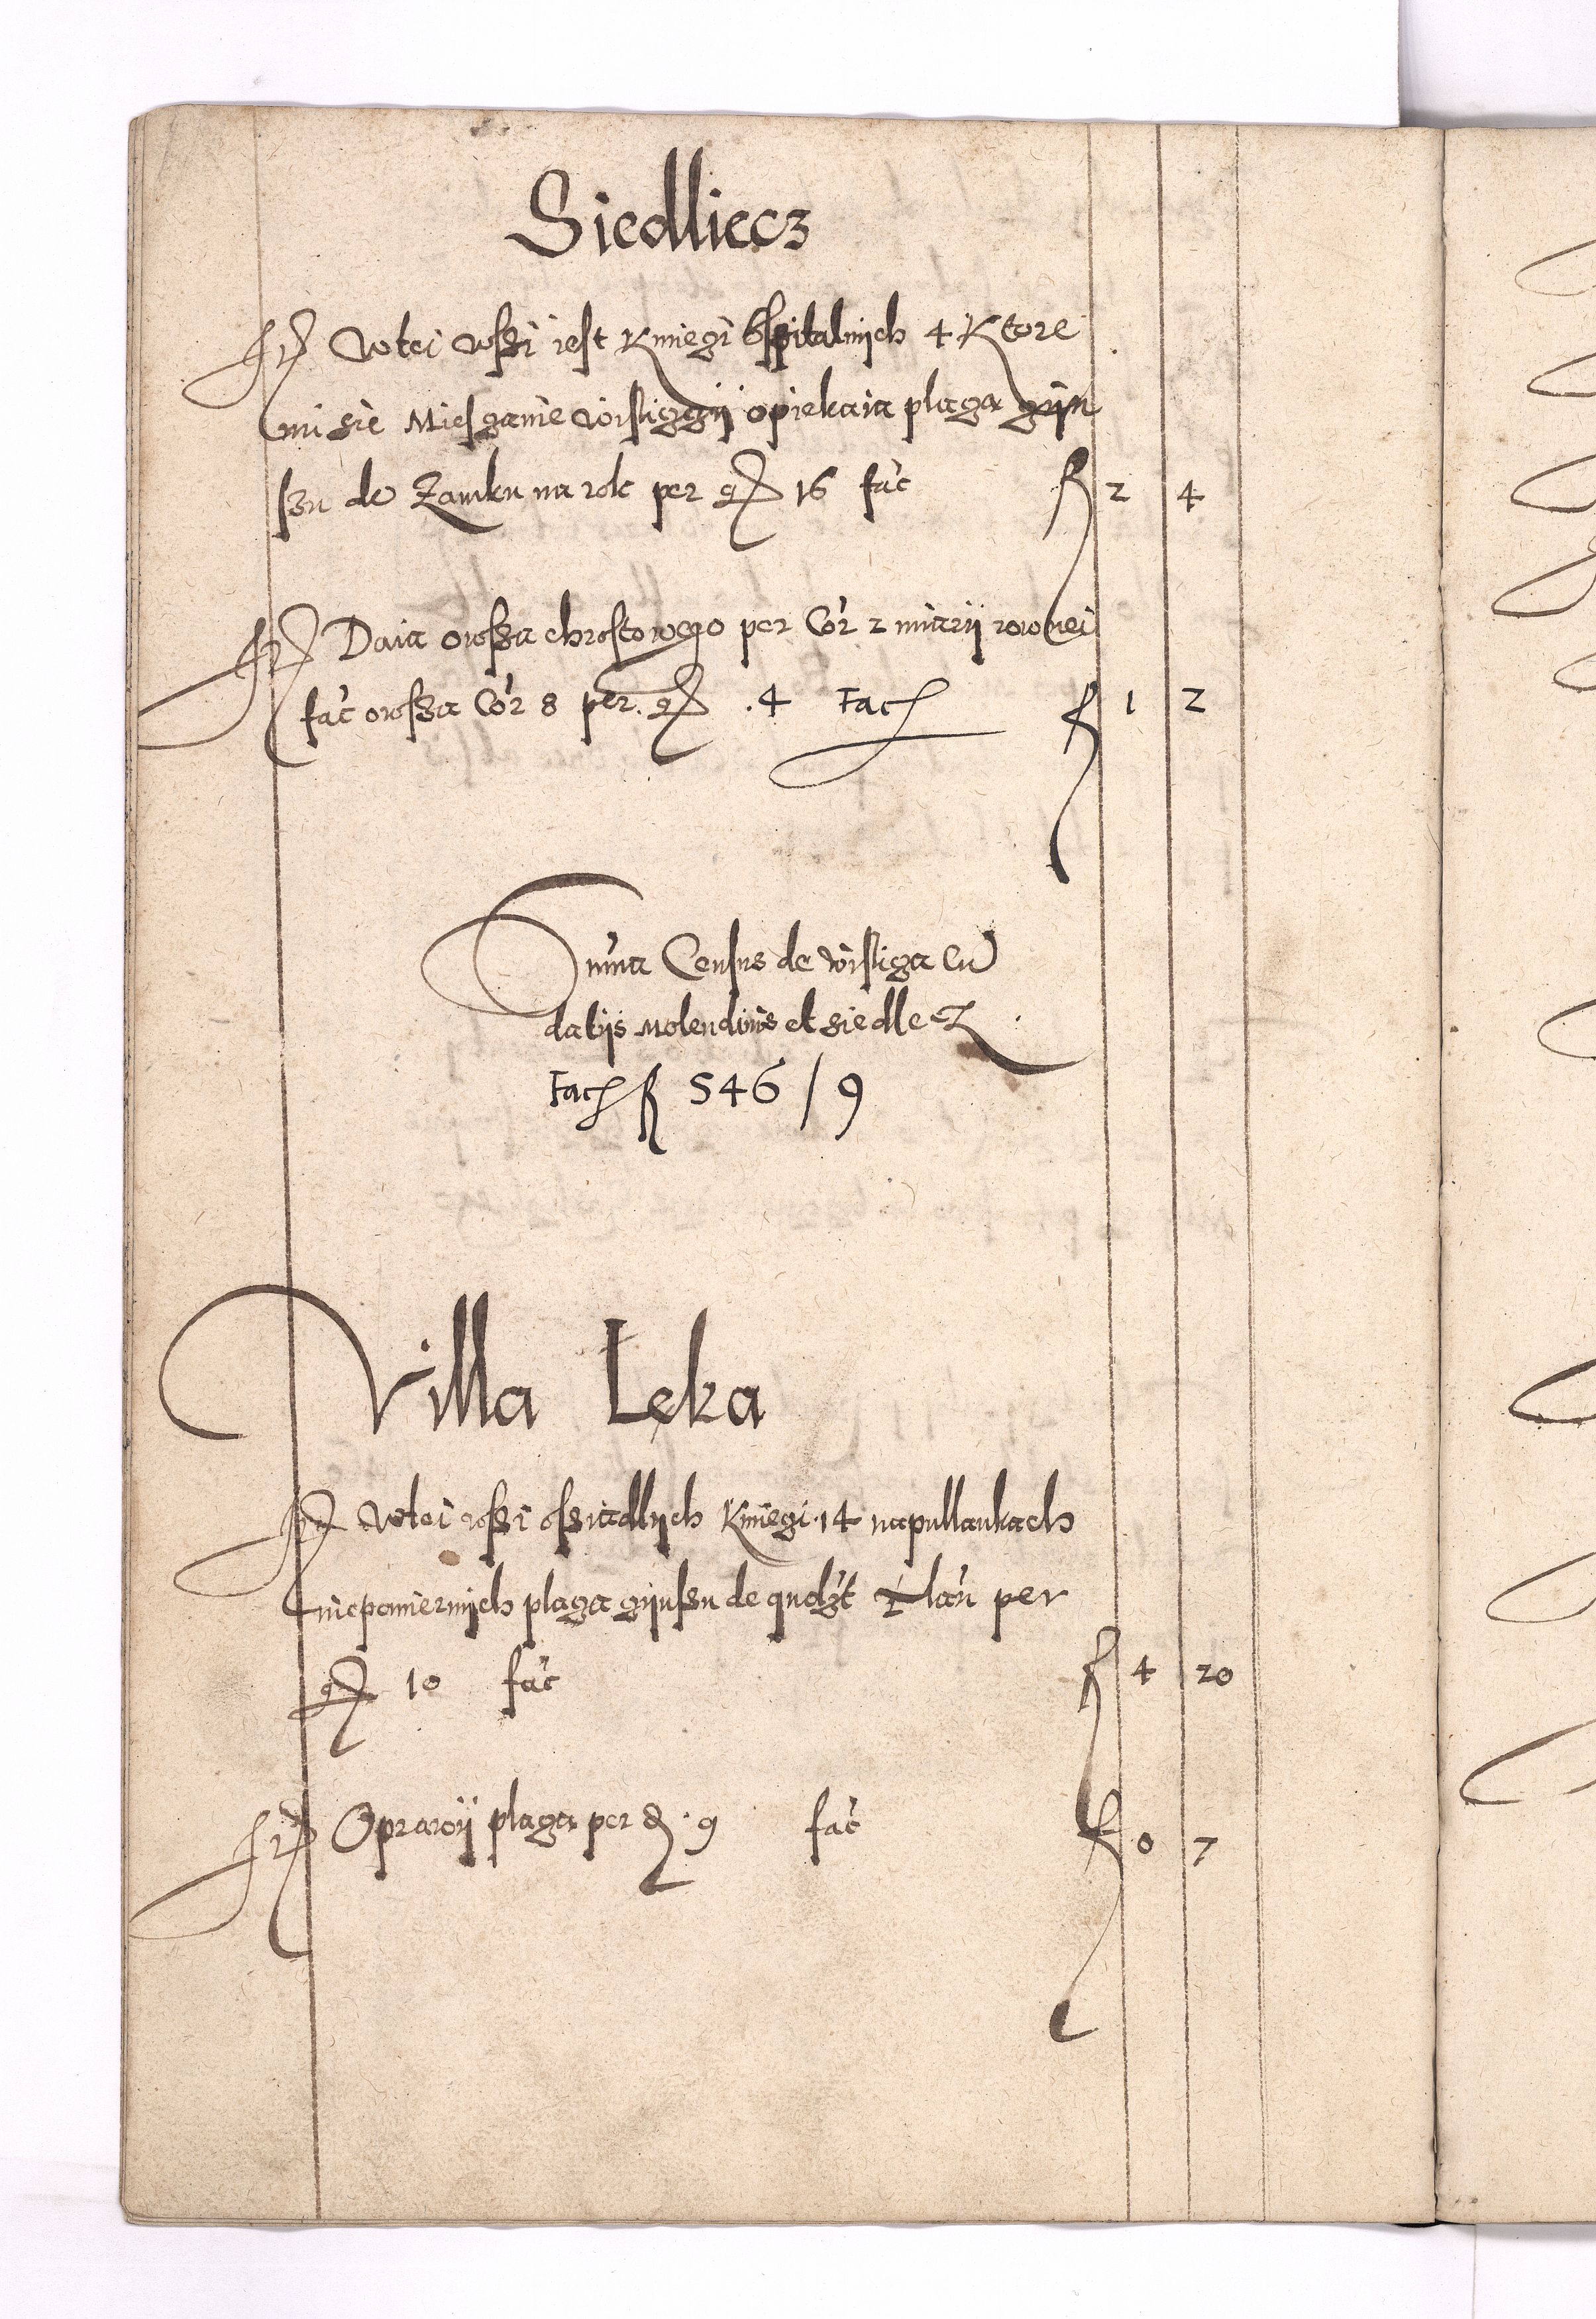 Siedliecz
It wtei wssi iest Kmiegi Sspitalnijch 4 Ktore
mi sie Miesgame wisligggij opiekaia plaga gijn
szu de Zamku na rok per gr 16 fac̃ fl 2 4
It Daia owssa chrostowego per Cor̃ 2 miarij rownei
fac̃ owssa Cor̃ 8 per gr .4 Fac̃ fl 1 2
Sum̃a Census de wisliga Cũ
datijs Molendinis et siedlecz
Fac̃ fl 546 / 9
Villa Łęka
It wtei wssi ossiadlijch Kmiegi 14 napullankach
niepomiernijch plaga gijnssu de quolzt Łan̄ per
gr 10 fac̃ fl 4 20
It Oprawij plaga per d 9 fac̃ fl 0 7